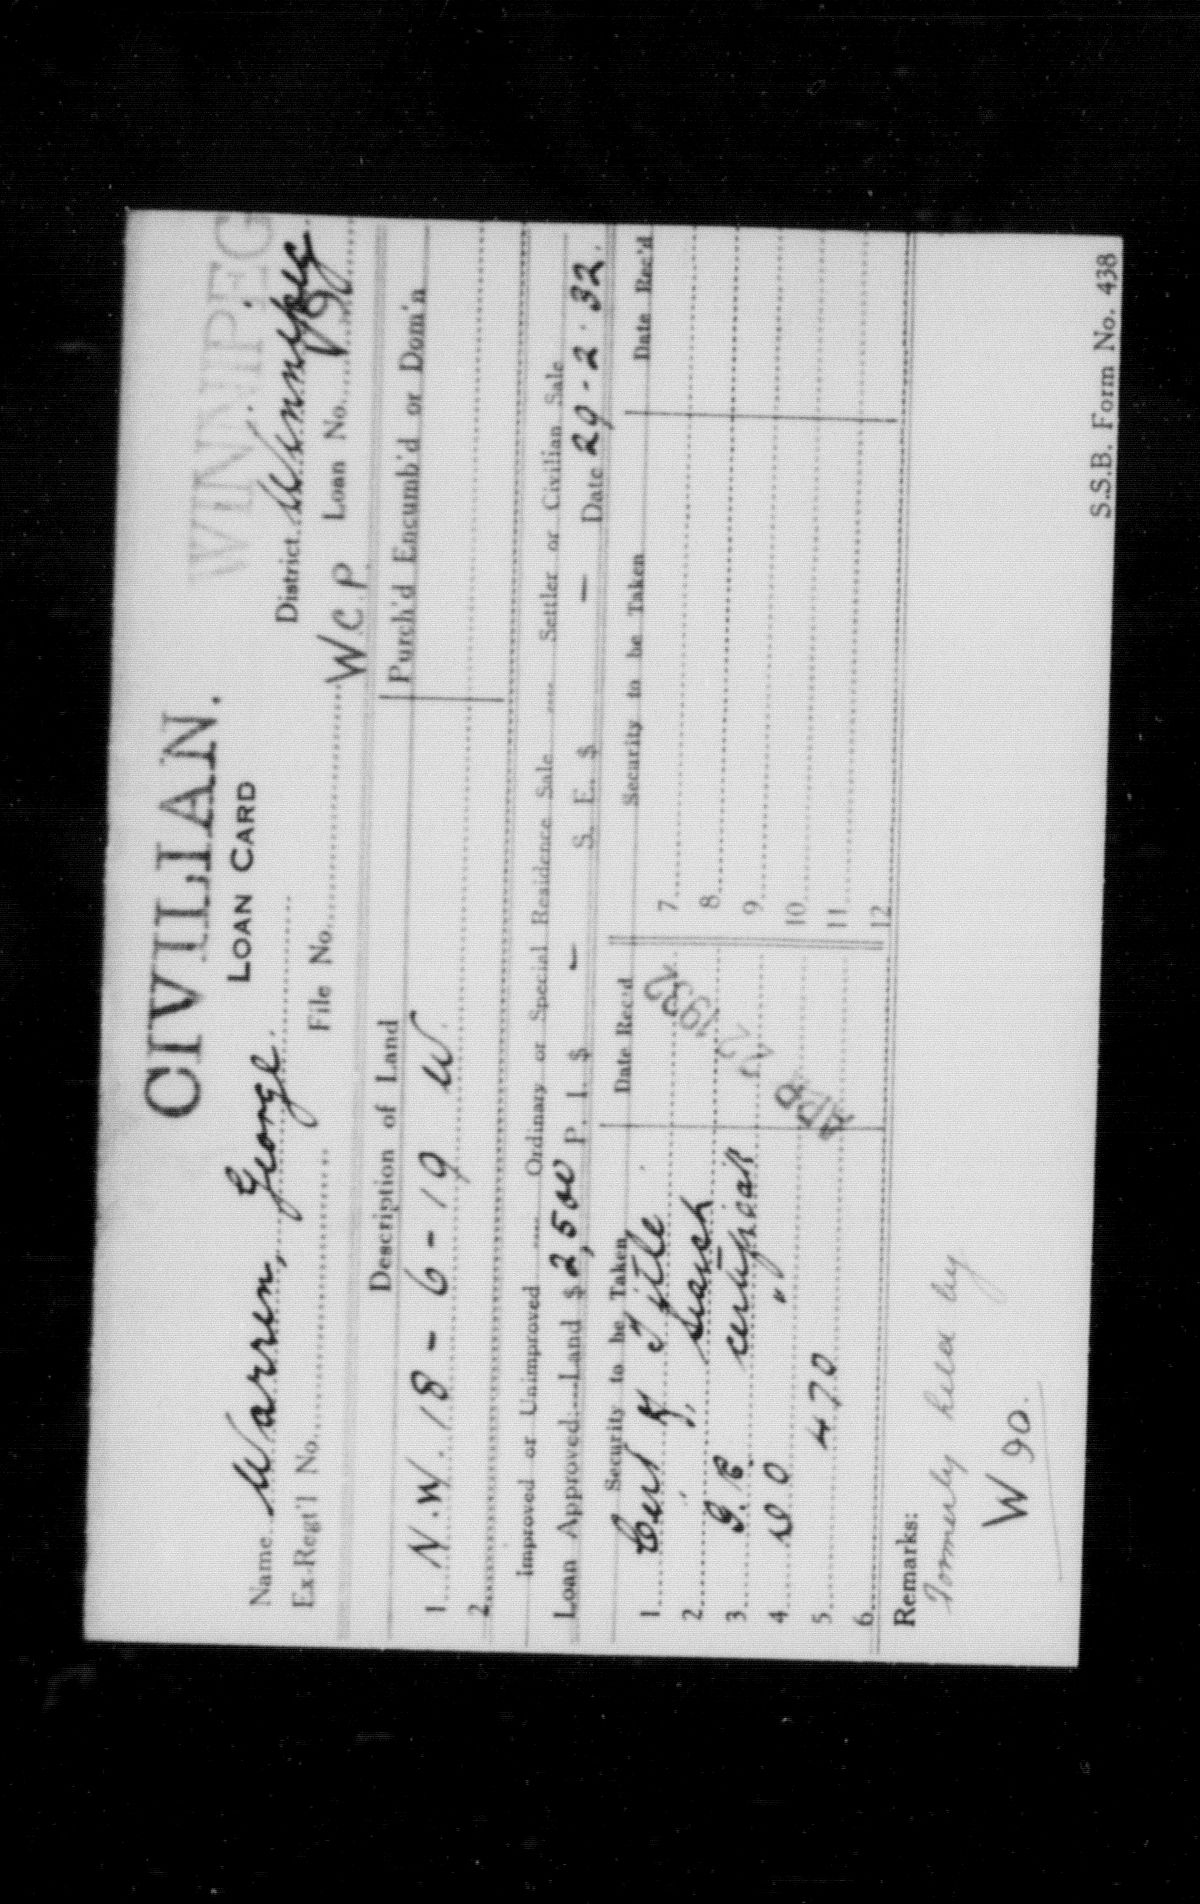 CIVILIAN.
WINNIPEG
LOAN CARD
Name Warren, George. District Winnipeg
Ex-Regt'l No. File No. W C P Loan No. V90
Description of Land Purch'd Encumb'd or Dom'n
1. N.W. 18 - 6 - 19 W
2.
Improved or Unimproved .... Ordinary or Special Residence Sale .... Settler or Civilian Sale
Loan Approved—Land $ 2,500 P. I. $ — S. E. $ — Date 29 - 2 - 32.
Security to be Taken Date Rec'd Security to be Taken Date Rec'd
1. Cert of Title 7.
2. " Search 8.
3. certificate 9.
4. D O " 10.
5. 470 11.
6. 12.
APR 1932
Remarks:
Formerly held by
W 90.
S.S.B. Form No. 438